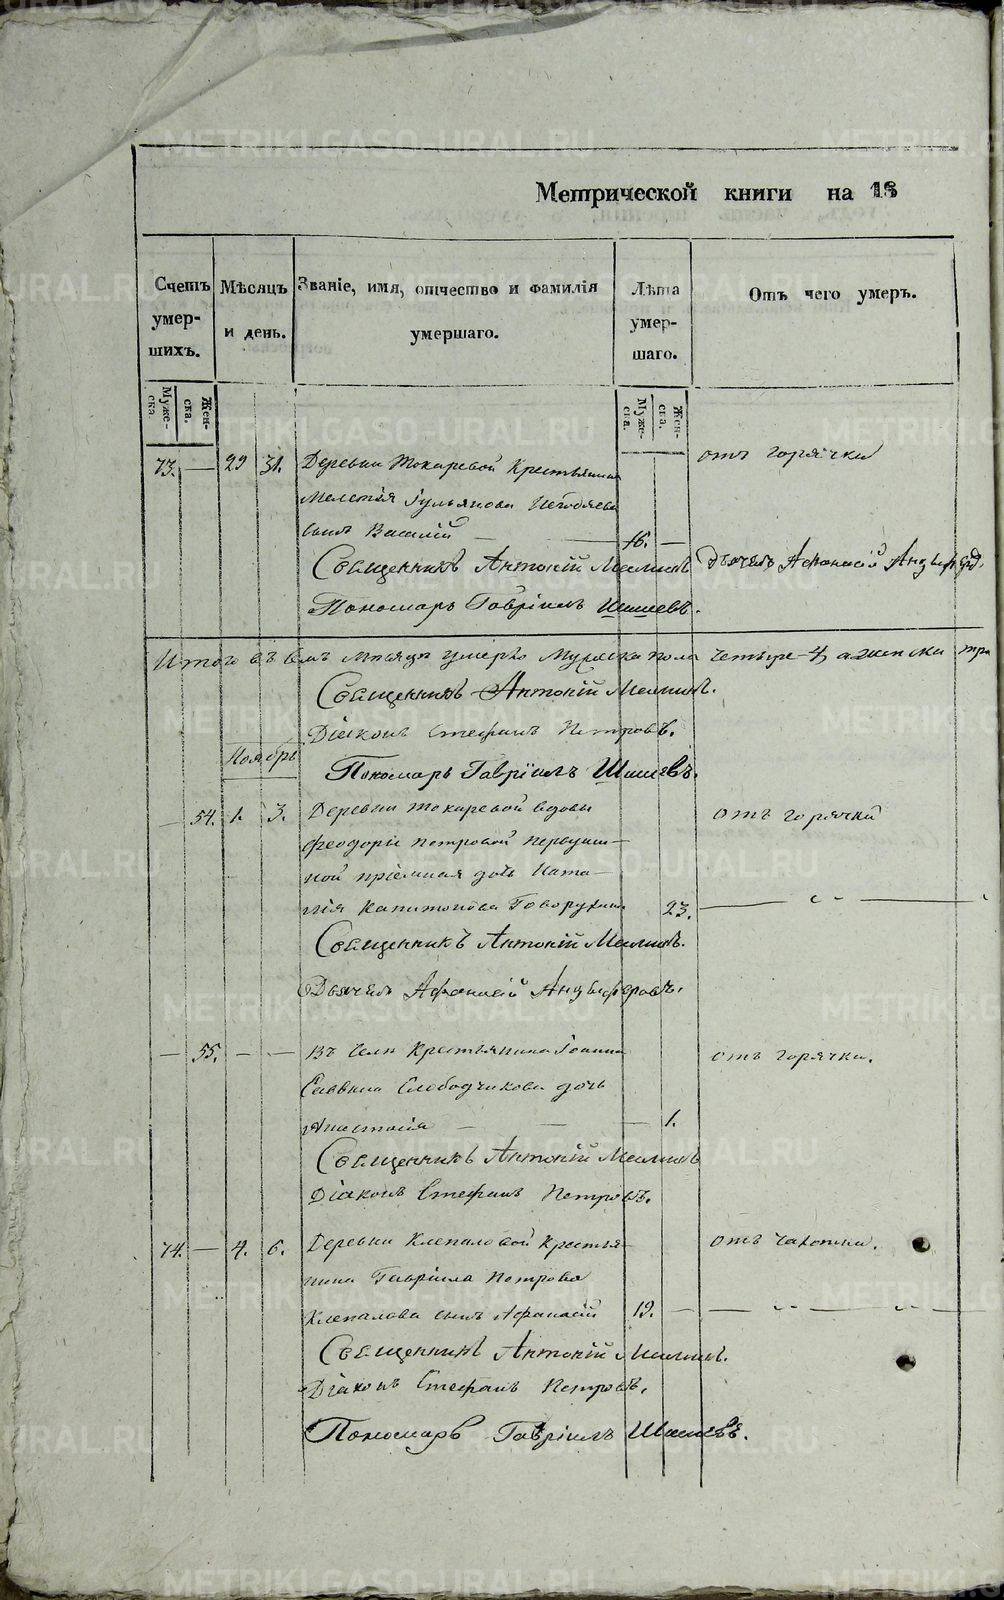 Метрической книги на 18
Счетъ умер- шихъ.
Мѣсяцъ и день.
Званіе, имя, отчество и фамилія умершаго.
Лѣта умер- шаго.
Отъ чего умеръ.
Муже- ска.
Жен- ска.
Муже- ска.
Жен- ска.
73. — 29 31. Деревни Токаревой Крестьянина отъ горячки
Мелетія
сынъ Василій — 16. —
Священникъ Антоній Дьячекъ Афанасій
Пономарь Гавріилъ
Итого въ семъ Мѣсяцѣ умерло Мужеска пола четыре 4, а женска три
Священникъ Антоній
Діаконъ Стефанъ Петровъ.
Ноябрь
Пономарь Гавріилъ
— 54. 1. 3. Деревни Токаревой вдовы отъ горячки
Феодоры Петровой
ной пріемная дочь Ната-
лія Капитонова 23.
Священникъ Антоній
Дьячекъ Афанасій Анцыферовъ.
— 55. — — Въ селѣ Крестьянина Іоанна отъ горячки.
Саввина Слободчикова дочь
Анастасія — — — 1.
Священникъ Антоній
Діаконъ Стефанъ Петровъ.
74. — 4. 6. Деревни Клепаловой Крестья- отъ чахотки.
нина Гавріила Петрова
Клепалова сынъ Афанасій 19. —
Священникъ Антоній
Діаконъ Стефанъ Петровъ.
Пономарь Гавріилъ
METRIKI.GASO-URAL.RU